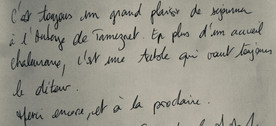 C'est toujours un grand plaisir de séjourner
à l'Auberge de Tamezret. En plus d'un accueil
chaleureux, c'est une table qui vaut toujours
le détour.
Merci encore, et à la prochaine.